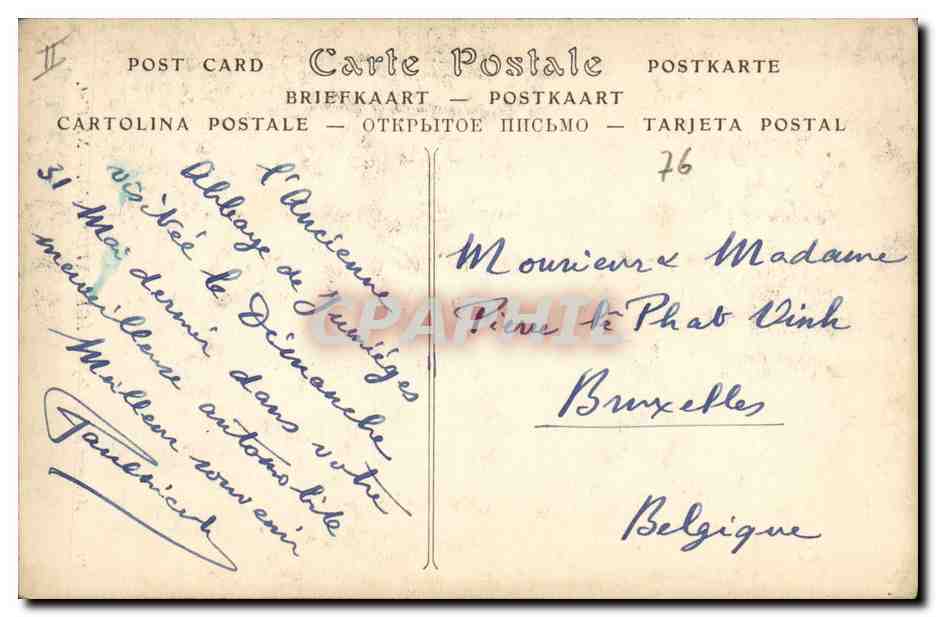 II
POST CARD Carte Postale POSTKARTE
BRIEFKAART — POSTKAART
CARTOLINA POSTALE — ОТКРЫТОЕ ПИСЬМО — TARJETA POSTAL
76
l'Ancienne
Abbaye de Jumièges
visitée le Dimanche
31 Mai dernier dans votre
merveilleuse automobile
Meilleur souvenir
Monsieur & Madame
Pierre Lê Phat Vinh
Bruxelles
Belgique
CPAPHIL